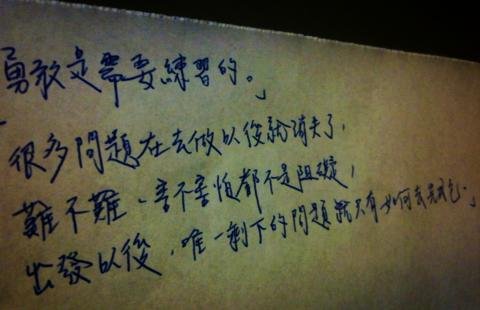 勇敢是需要練習的。」
很多問題在去做以後就消失了,
難不難、害不害怕都不是阻礙,
出發以後,唯一剩下的問題就只有如何去完成。」